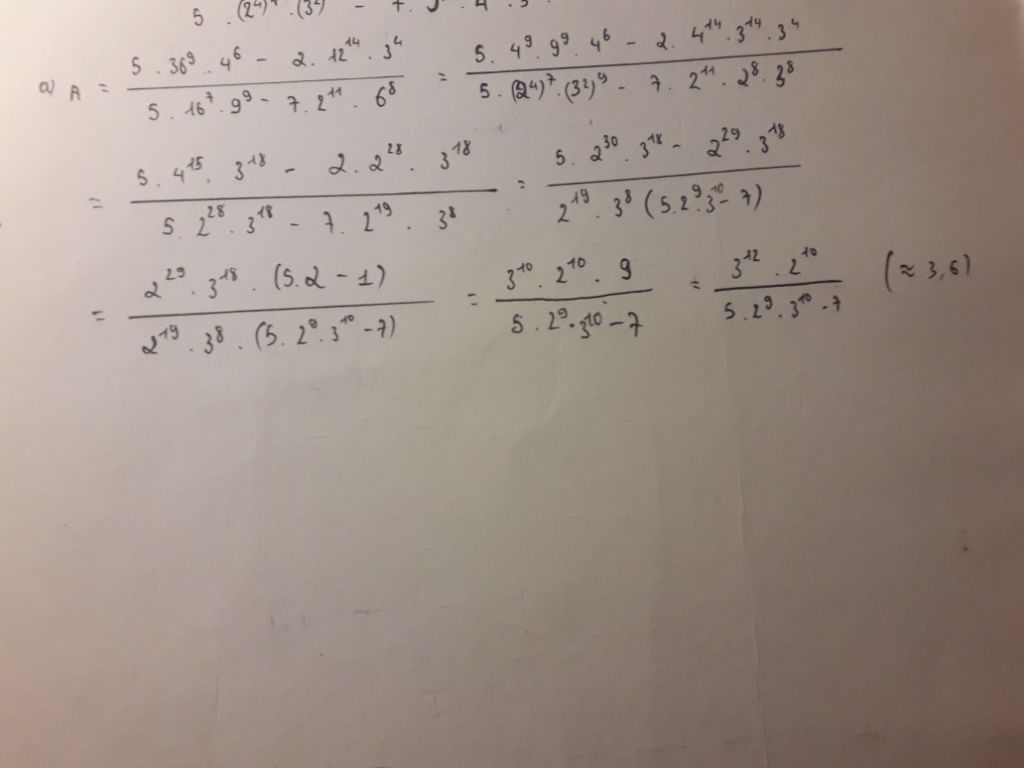 5 . (2⁴)⁷ . (3²) - 7 . 4 . 3
a) A = (5 . 36⁹ . 4⁶ - 2 . 12¹⁴ . 3⁴) / (5 . 16⁷ . 9⁹ - 7 . 2¹¹ . 6⁸) = (5 . 4⁹ . 9⁹ . 4⁶ - 2 . 4¹⁴ . 3¹⁴ . 3⁴) / (5 . (2⁴)⁷ . (3²)⁹ - 7 . 2¹¹ . 2⁸ . 3⁸)
= (5 . 4¹⁵ . 3¹⁸ - 2 . 2²⁸ . 3¹⁸) / (5 . 2²⁸ . 3¹⁸ - 7 . 2¹⁹ . 3⁸) = (5 . 2³⁰ . 3¹⁸ - 2²⁹ . 3¹⁸) / (2¹⁹ . 3⁸ (5 . 2⁹ . 3¹⁰ - 7))
= (2²⁹ . 3¹⁸ . (5 . 2 - 1)) / (2¹⁹ . 3⁸ . (5 . 2⁹ . 3¹⁰ - 7)) = (3¹⁰ . 2¹⁰ . 9) / (5 . 2⁹ . 3¹⁰ - 7) = (3¹² . 2¹⁰) / (5 . 2⁹ . 3¹⁰ - 7) (≈ 3,6)